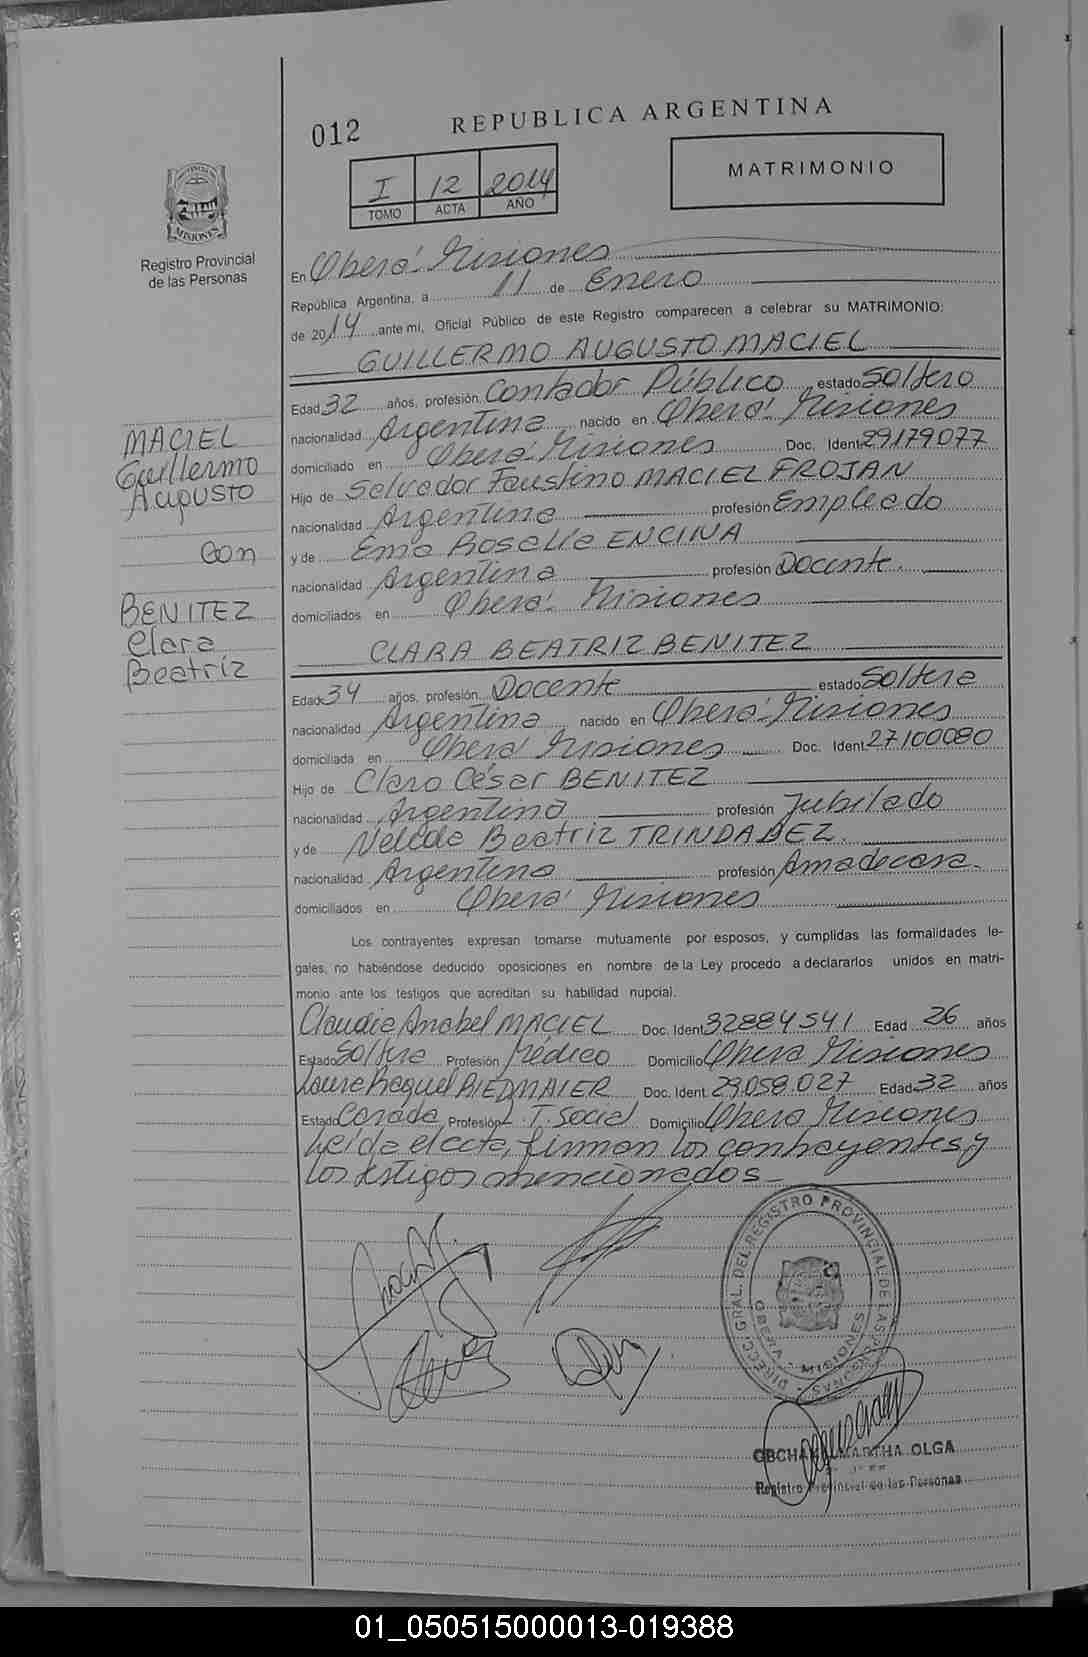 012
REPUBLICA ARGENTINA
I 12 2014
TOMO ACTA AÑO
MATRIMONIO
PROVINCIA DE
MISIONES
Registro Provincial
de las Personas
En Oberá Misiones
República Argentina, a 11 de Enero
de 2014 ante mi, Oficial Público de este Registro comparecen a celebrar su MATRIMONIO:
GUILLERMO AUGUSTO MACIEL
Edad 32 años, profesión Contador Público estado Soltero
nacionalidad Argentina nacido en Oberá Misiones
domiciliado en Oberá Misiones Doc. Ident. 29179077
Hijo de Salvador Faustino MACIEL FROJAN
nacionalidad Argentina profesión Empleado
y de Ema Roselia ENCINA
nacionalidad Argentina profesión Docente.
domiciliados en Oberá Misiones
MACIEL
Guillermo
Augusto
con
BENITEZ
Clara
Beatriz
CLARA BEATRIZ BENITEZ
Edad 34 años, profesión Docente estado Soltera
nacionalidad Argentina nacido en Oberá Misiones
domiciliada en Oberá Misiones Doc. Ident. 27100080
Hijo de Claro César BENITEZ
nacionalidad Argentina profesión Jubilado
y de Beatriz
nacionalidad Argentina profesión Amadecasa.
domiciliados en Oberá Misiones
Los contrayentes expresan tomarse mutuamente por esposos, y cumplidas las formalidades le-
gales, no habiéndose deducido oposiciones en nombre de la Ley procedo a declararlos unidos en matri-
monio ante los testigos que acreditan su habilidad nupcial.
Claudia Anabel MACIEL Doc. Ident. 32884541 Edad 26 años
Estado Soltera Profesión Médico Domicilio Oberá Misiones
Laura Raquel RIEDMAIER Doc. Ident. 29.058.027 Edad 32 años
Estado Casada Profesión T. Social Domicilio Oberá Misiones
Leída el acta, firman los contrayentes y
los testigos mencionados
DIRECC. GRAL. DEL REGISTRO PROVINCIAL DE LAS PERSONAS
OBERA - MISIONES
MARTHA OLGA
Registro Provincial de las Personas
01_050515000013-019388